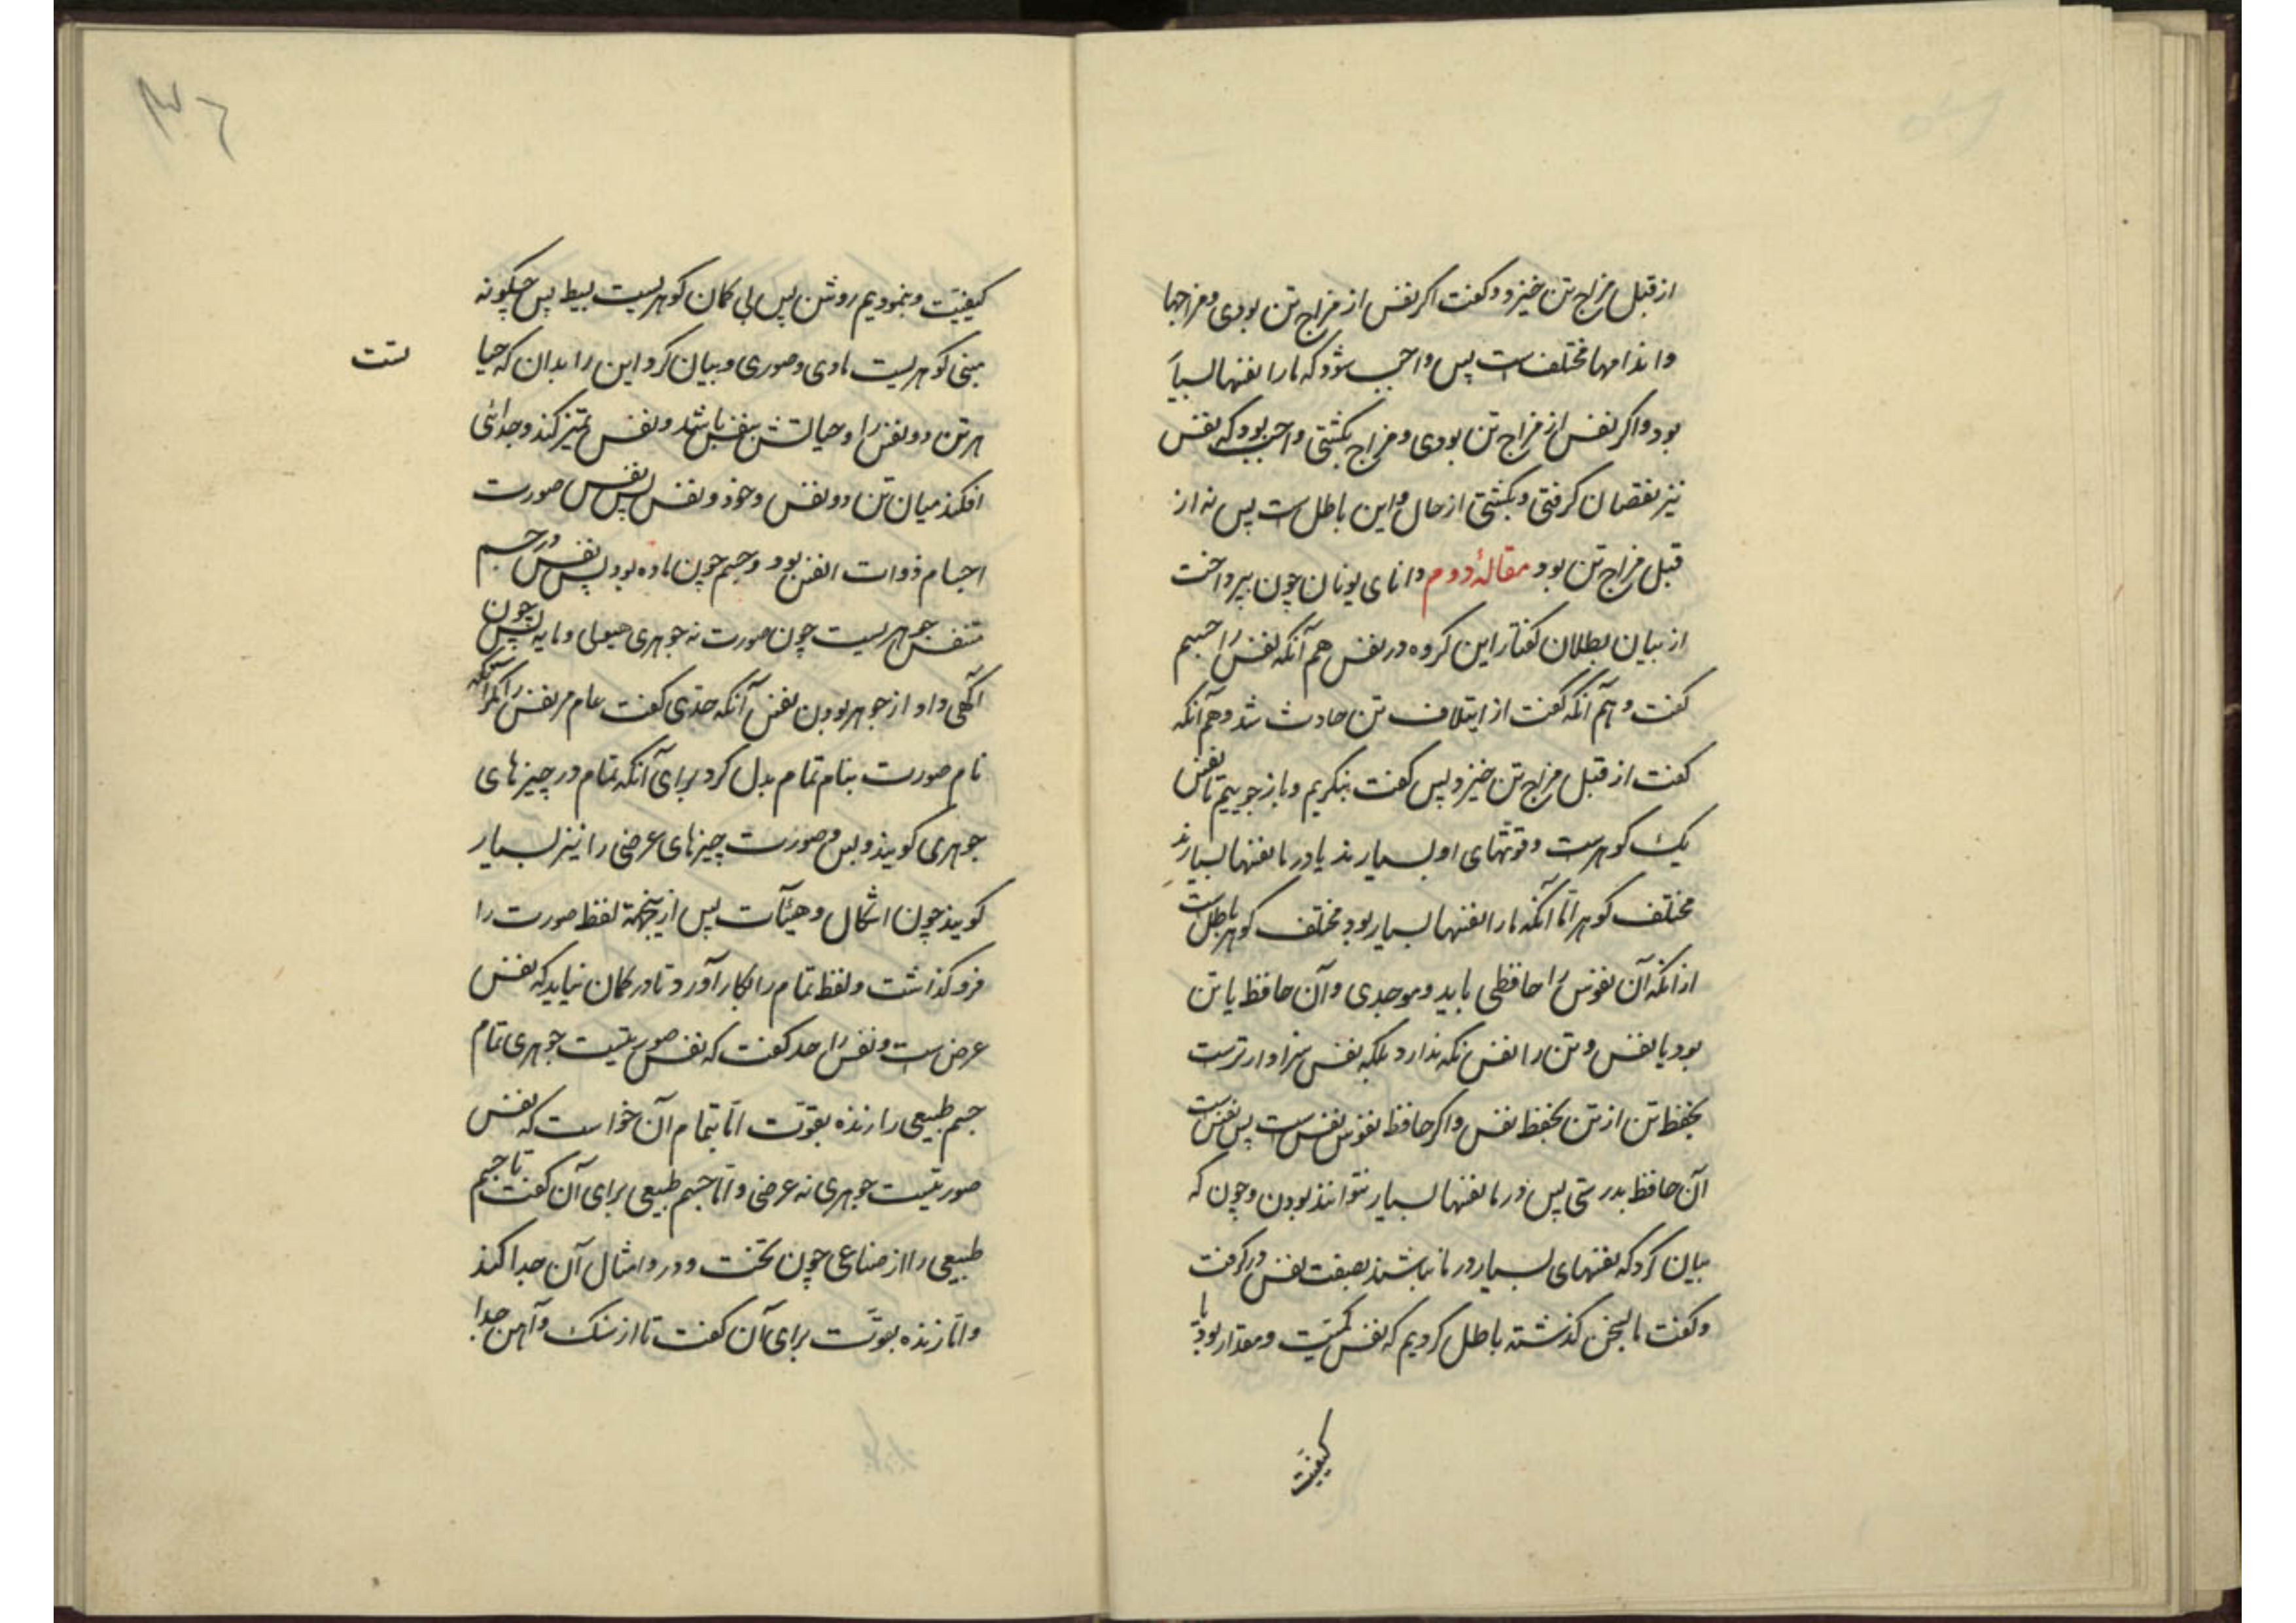 از قبل مزاج تن خیزد و گفت اگر نفس از مزاج تن بودی و مزاجها
و اندامها مختلف است پس واجب شود که ما را نفسها بسیار
بود و اگر نفس از مزاج تن بودی و مزاج بگشتی واجب بود که نفس
نیز نقصان گرفتی و بگشتی از حال و این باطل است پس نه از
قبل مزاج تن بود مقالهٔ دوم دانای یونان چون بپرداخت
از بیان بطلان گفتار این گروه در نفس هم آنکه نفس را جسم
گفت و هم آنکه گفت از ایتلاف تن حادث شد و هم آنکه
گفت از قبل مزاج تن خیزد پس گفت بنگریم و باز جوییم تا نفس
یک گوهرست و قوتهای او بسیارند یا در ما نفسها بسیارند
مختلف گوهر امّا آنکه ما را نفسها بسیار بود مختلف گوهر باطل است
از آنکه آن نفوس را حافظی باید و موجدی و آن حافظ یا تن
بود یا نفس و تن را نفس نگه ندارد بلکه نفس سزاوارترست
بحفظ تن از تن بحفظ نفس و اگر حافظ نفوس نفس است پس نفس است
آن حافظ بدرستی پس در ما نفسها بسیار نتوانند بودن و چون که
بیان کرد که نفسهای بسیار در ما نباشند بصفت نفس در گرفت
و گفت ما بسخن گذشته باطل کردیم که نفس کمیّت و مقدار بود یا
کیفیّت
کیفیّت و نمودیم روشن پس بی گمان گوهریست بسیط پس چگونه
مبنی گوهریست مادی و صوری و بیان کرد این را بدان که حیا
ست
هر تن ذو نفس را و حیاتش بنفس باشد و نفس تمیز کند و جدائی
افکند میان تن ذو نفس و خود و نفس پس نفس صورت
اجسام ذوات انفس بود و جسم چون ماده بود پس نفس در جسم
متنفس جوهریست چون صورت نه جوهری هیولی و مایه پس چون
آگهی داد از جوهر بودن نفس آنگه حدّی گفت عام مر نفس را مگر آنکه
نام صورت بنام تمام بدل کرد برای آنکه تمام در چیزهای
جوهری گویند و بس و صورت چیزهای عرضی را نیز بسیار
گویند چون اشکال و هیئآت پس ازینجهة لفظ صورت را
فرو گذاشت و لفظ تمام را بکار آورد تا در گمان نیاید که نفس
عرض است و نفس را حد گفت که نفس صورتیست جوهری تمام
جسم طبیعی را زنده بقوّت امّا بتمام آن خواست که نفس
صورتیست جوهری نه عرضی و امّا جسم طبیعی برای آن گفت تا جسم
طبیعی را از صناعی چون تخت و در و امثال آن جدا کند
و امّا زنده بقوّت برای آن گفت تا از سنگ و آهن جدا